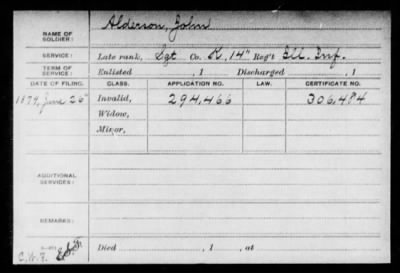 NAME OF SOLDIER: Alderson, John
SERVICE: Late rank, Sgt Co. K, 14" Reg't Ill. Inf.
TERM OF SERVICE: Enlisted , 1 Discharged , 1
DATE OF FILING. CLASS. APPLICATION NO. LAW. CERTIFICATE NO.
1879, June 26 Invalid, 294,466 306,484
Widow,
Minor,
ADDITIONAL SERVICES:
REMARKS:
Died , 1 , at